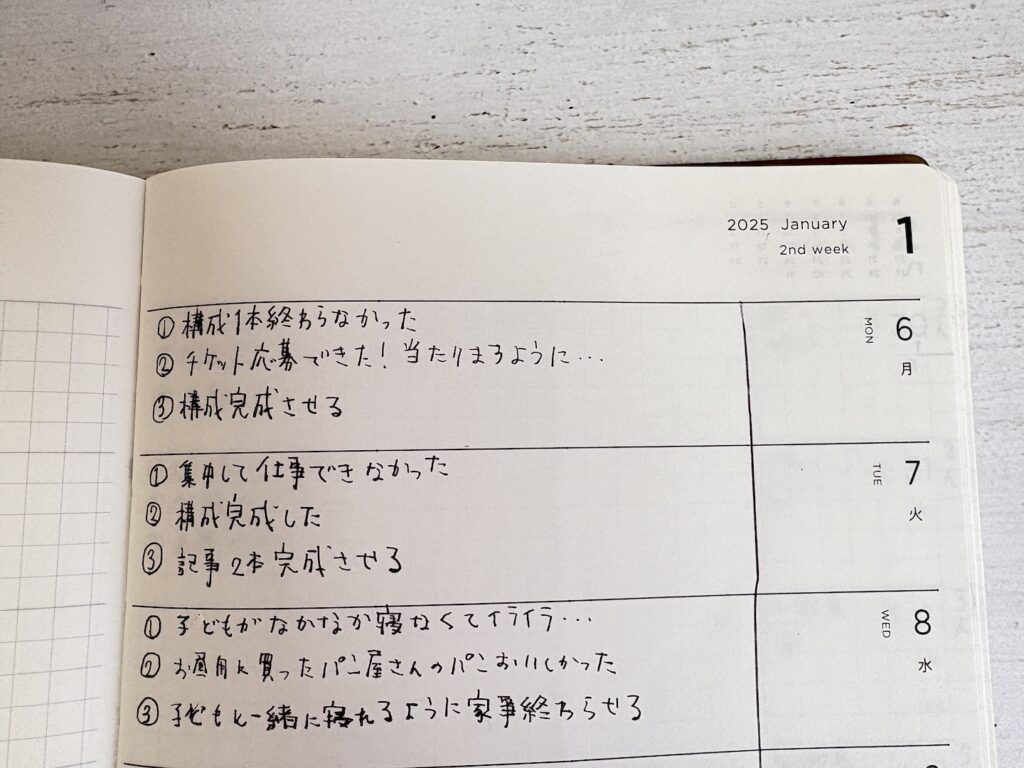 2025 January 1
2nd week
①構成1本終わらなかった
②チケット応募できた！当たりまるように…
③構成完成させる
MON 6 月
①集中して仕事できなかった
②構成完成した
③記事2本完成させる
TUE 7 火
①子どもがなかなか寝なくてイライラ…
②お昼用に買ったパン屋さんのパンおいしかった
③子どもと一緒に寝れるように家事終わらせる
WED 8 水